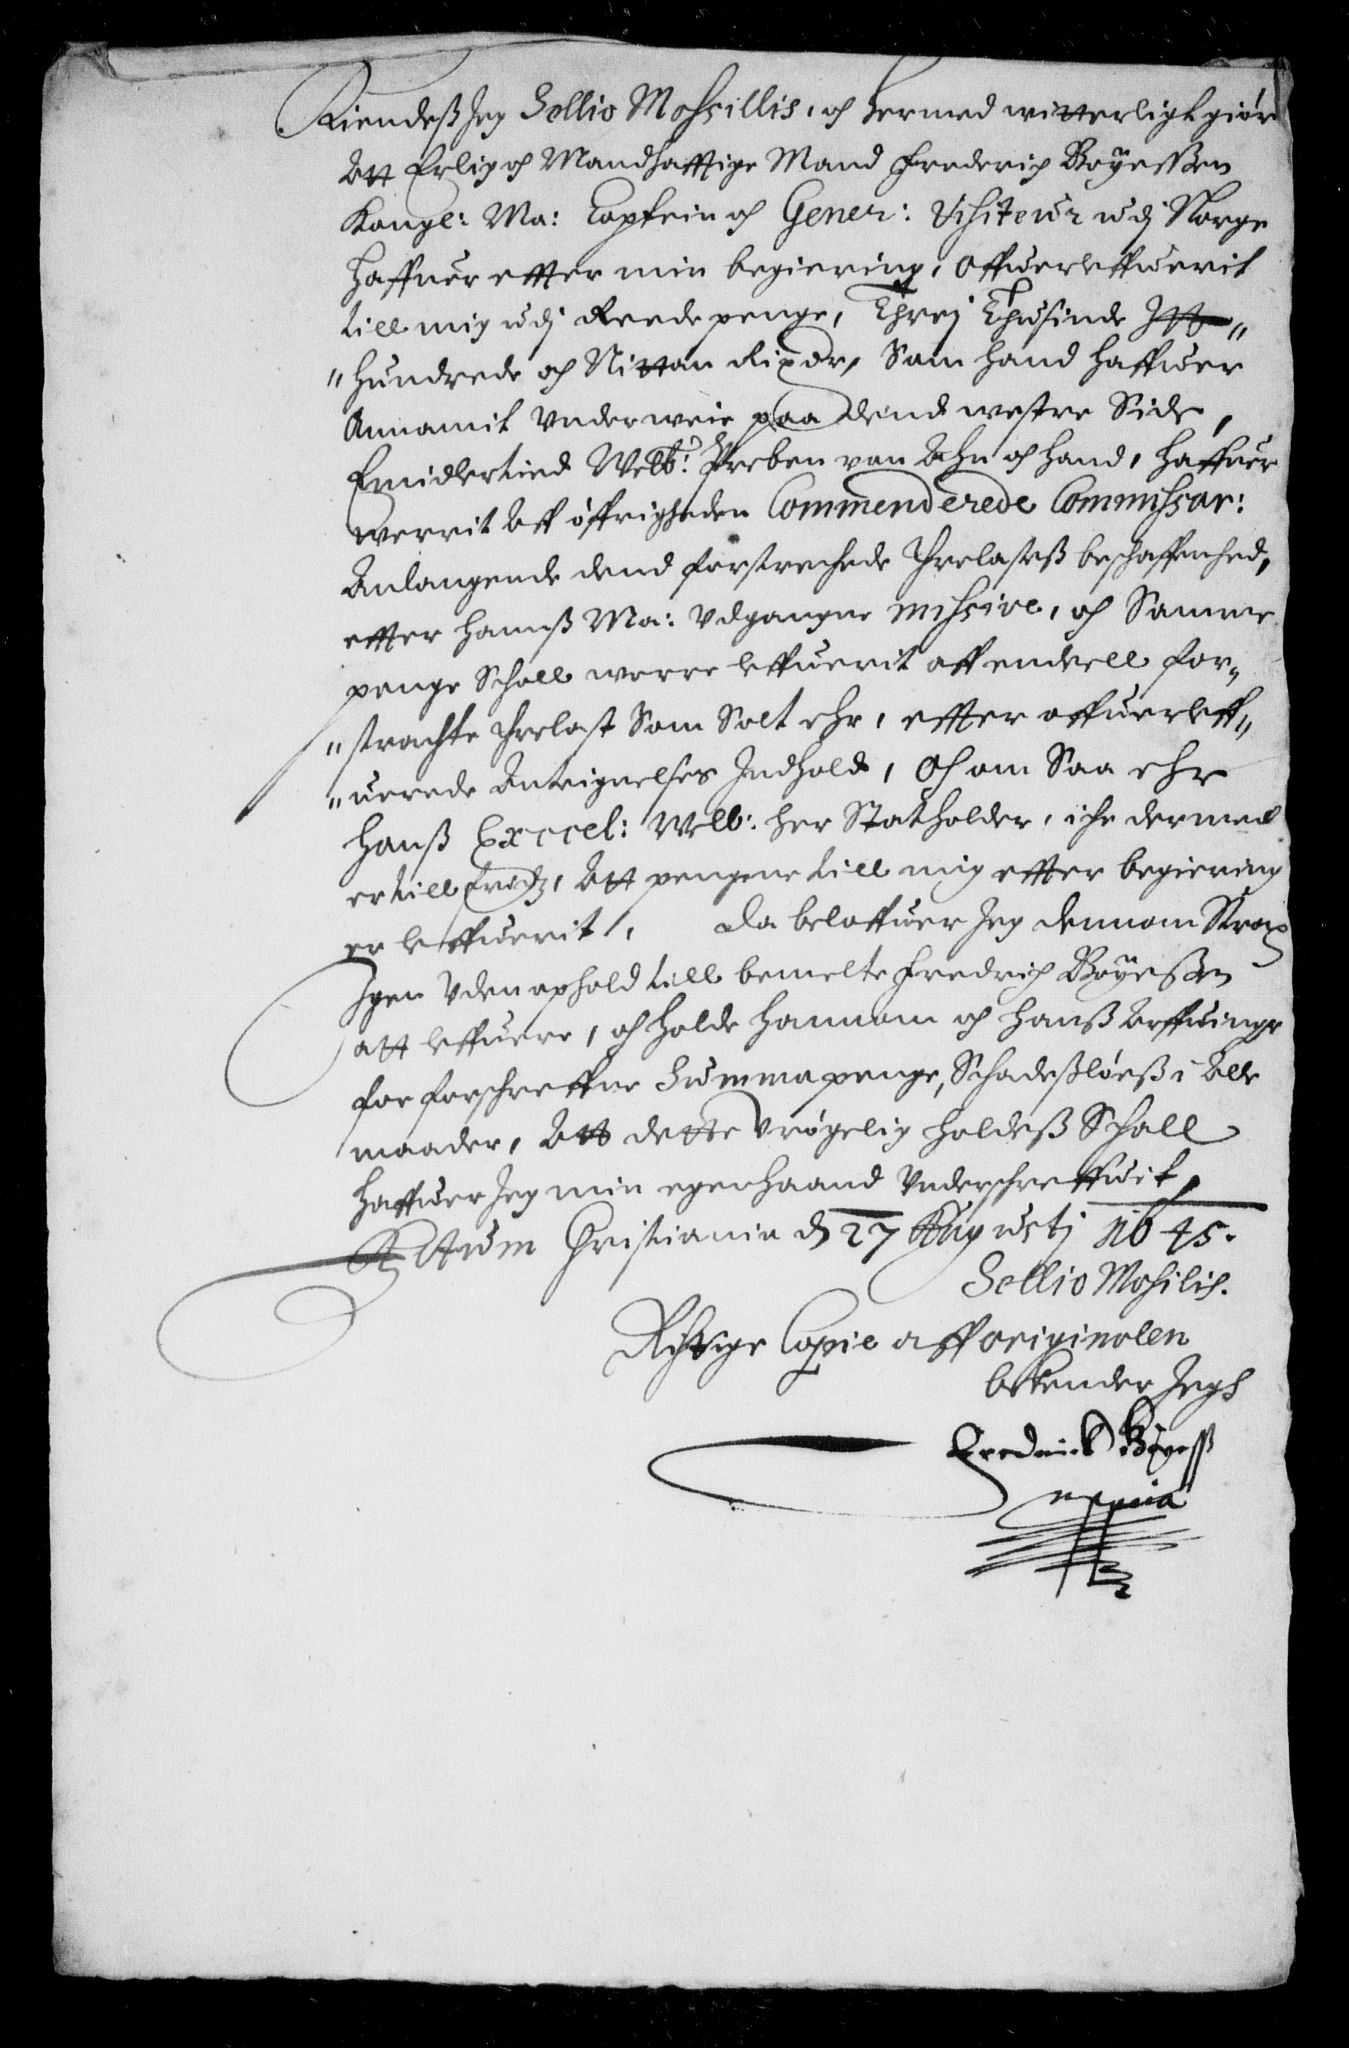 Kiendeß Jeg Sellio Mossillis, och hermed witterligt giör
Att Erlig och Mandhafftige Mand Frederich Böyeßen
Kongl: Ma: Captein och Gener: Visiteur udj Norge
haffuer effter min begiering, offuerleffuerit
till mig udj Reede penge, Threj Thusinde Itt
"Hundrede och Nittan Rixdr, Som hand haffuer
Annamit Underweie paa dend westre Side,
Emidlertied Welb: Preben von Ahn och hand, haffuer
werrit Aff öffrigheden Commenderede Commissar:
Anlangende dend forstrechede Threlasteß beschaffenhed,
effter hanß Ma: Udgangne missive, och Samme
penge Schall werre leffuerit aff endeell for-
"strachte Threlast Som Solt ehr, effter offuerleff-
"uerede Anteignelses Indhold, Och om Saa ehr
Hanß Exccel: Welb: her Statholder, iche dermed
er till fredz, Att pengene till mig effter begiering
er leffuerit, Da beloffuer Jeg dennom Strax
Igen Uden ophold till bemelte Fredrich Böyeßen
att leffuere, och holde hannom och hanß Arffuinge
for forschreffne Summa penge, Schadeßlöeß i Alle
maader, Att dette Urögelig holdeß Schall
haffuer Jeg min egen haand Underschreffuit,
Actum Christiania d 27 Augustj 1645.
Sellio Mosilis.
Richtige Copie aff originalen
bekender Jegh
Frederick Böyeß
mppria